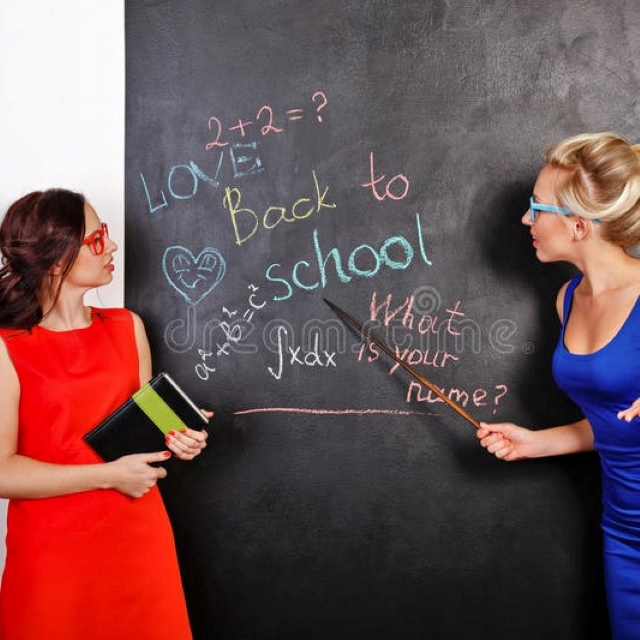 2+2=?
LOVE
Back to
school
a²+b²=c²
∫xdx
What
is your
name?
dreamstime